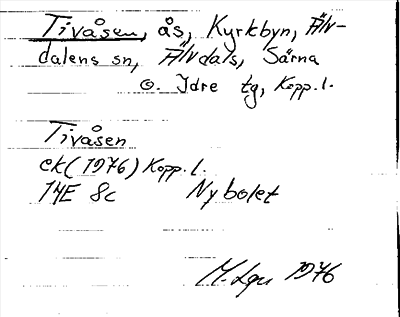 Tivåsen, ås, Kyrkbyn, Älv-
dalens sn, Älvdals, Särna
o. Idre tg, Kopp. l.
Tivåsen
ek (1976) Kopp. l.
14E 8c Nybolet
1976